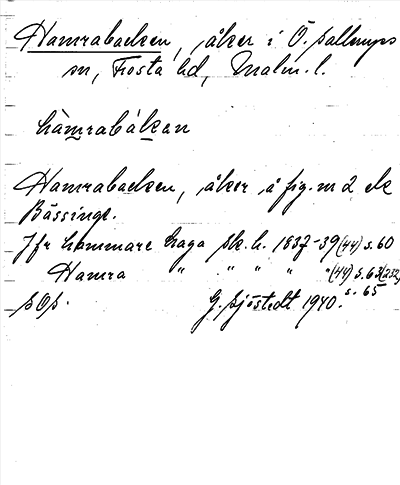 Hamrabacken, åker i Ö. Sallerups
sn, Frosta hd, Malm. l.
hàmrabákan
Hamrabacken, åker å fig. m 2 ek
Bässinge.
Jfr hammare haga sk. h. 1837-39 (44) s. 60
Hamra " " " " " (44) s. 63 (252),
s. 65
SOS. G. Sjöstedt 1940.